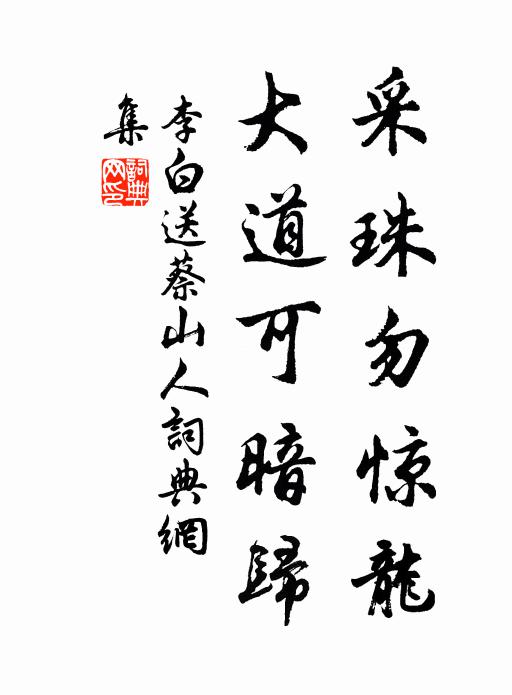 采珠勿惊龍
大道可暗歸
李白送蔡山人詞典網
集
詞典网印